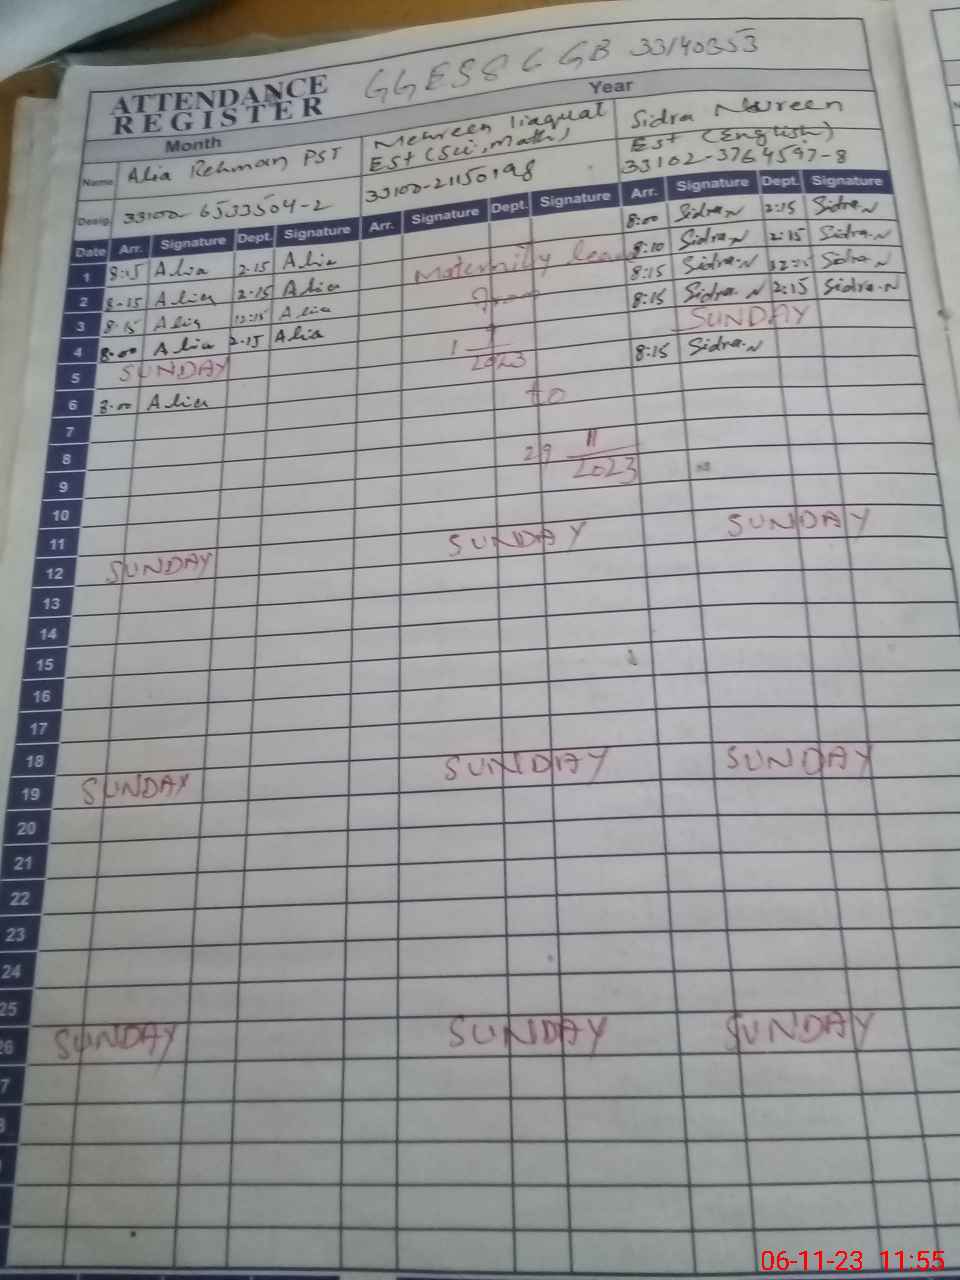 ATTENDANCE REGISTER GGESS 6 GB 33140353
Month Year
Name Alia Rehman PST Mehreen liaquat Est (Sci, Math) Sidra Nureen Est (English)
Desig. 33100-6533504-2 33100-21150198 33102-3764597-8
Date Arr. Signature Dept. Signature Arr. Signature Dept. Signature Arr. Signature Dept. Signature
1 8:15 Alia 2:15 Alia Maternity leave 8:00 Sidra.N 2:15 Sidra.N
2 8:15 Alia 2:15 Alia From 8:10 Sidra.N 2:15 Sidra.N
3 8:15 Alia 12:15 Alia 8:15 Sidra.N 12:15 Sidra.N
4 8:00 Alia 2:15 Alia 1 2023 8:15 Sidra.N 2:15 Sidra.N
5 SUNDAY SUNDAY
6 8:00 Alia to 8:15 Sidra.N
7
8 29 11 2023
9
10
11 SUNDAY SUNDAY
12 SUNDAY
13
14
15
16
17
18 SUNDAY SUNDAY
19 SUNDAY
20
21
22
23
24
25
26 SUNDAY SUNDAY SUNDAY
7
06-11-23 11:55